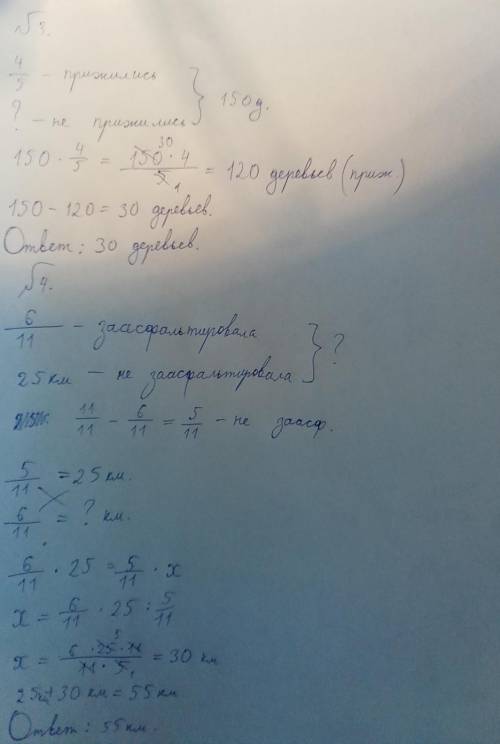 №3.
4/5 – прижились } 150 д.
? – не прижились
150 · 4/5 = 150 · 4 / 5 = 120 деревьев (приж.)
30
1
150 – 120 = 30 деревьев.
Ответ: 30 деревьев.
№4.
6/11 – заасфальтировала } ?
25 км – не заасфальтировала
11/11 – 6/11 = 5/11 – не заасф.
5/11 = 25 км.
6/11 = ? км.
6/11 · 25 = 5/11 · x
x = 6/11 · 25 : 5/11
x = 6 · 25 · 11 / 11 · 5 = 30 км
5
1
25 км + 30 км = 55 км
Ответ: 55 км.